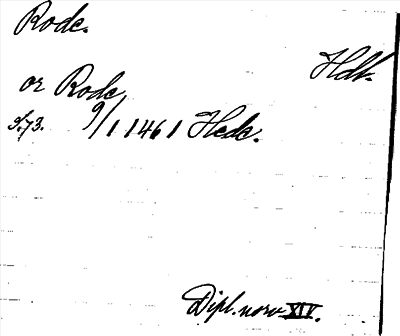 Rode.
Hdl.
or Rode
S. 73. 9/1 1461 Hede.
Dipl. norv XIV.